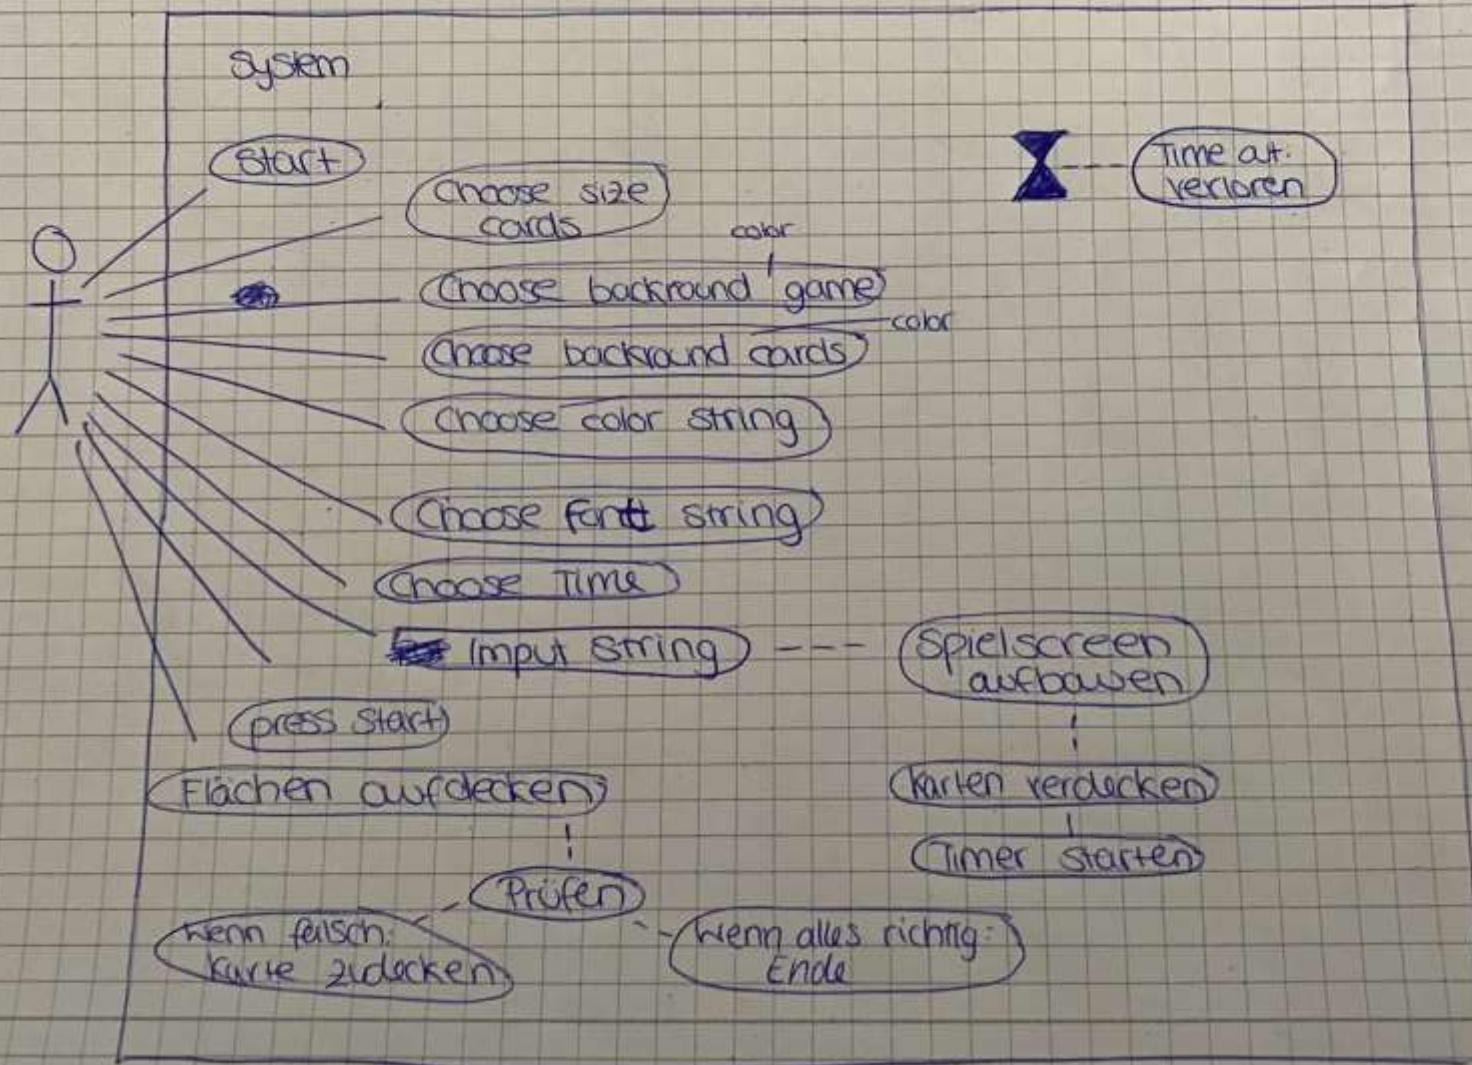 System
Start
Time out:
verloren
Choose size
cards
color
Choose backround game
color
Choose backround cards
Choose color string
Choose fontt string
Choose Time
Imput String
Spielscreen
aufbauen
press start
Flächen aufdecken
Karten verdecken
Timer starten
Prüfen
Wenn falsch:
Karte zudecken
Wenn alles richtig:
Ende